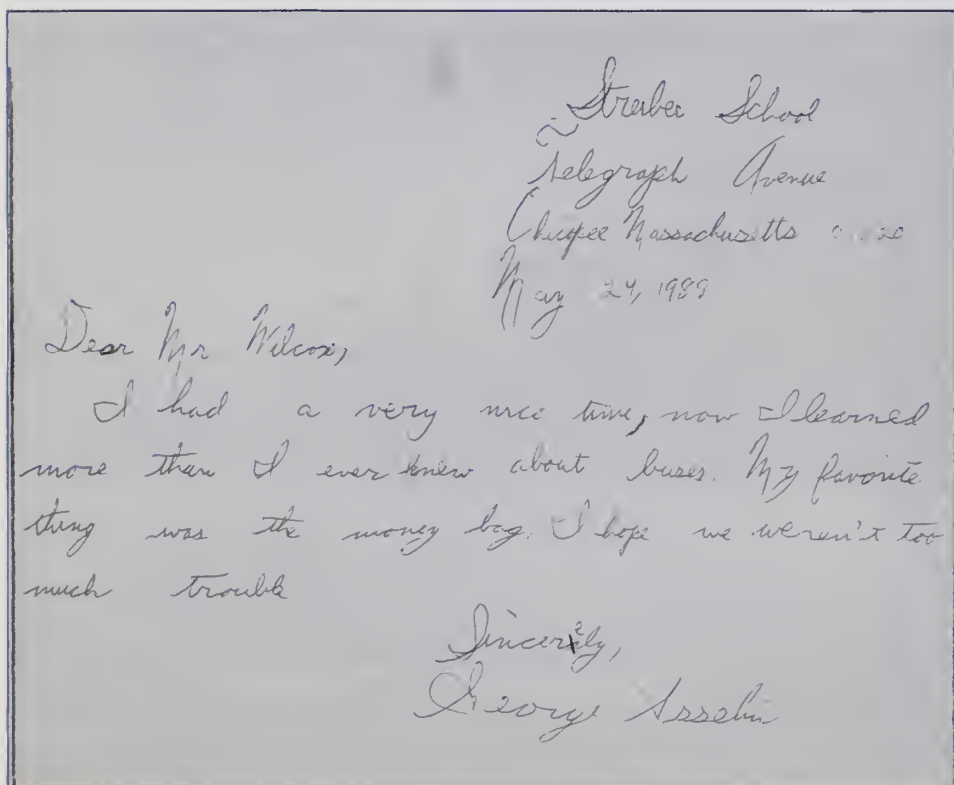 Streiber School
Telegraph Avenue
Chicpee Massachusetts
May 24, 1988
Dear Mr Wilcox,
I had a very nice time, now I learned
more than I ever knew about buses. My favorite
thing was the money bag. I hope we weren't too
much trouble
Sincerely,
George Asselin